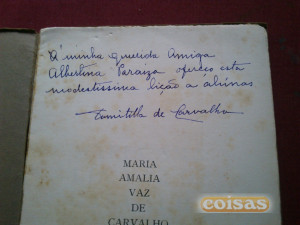 Á minha querida Amiga
Albertina Paraizo ofereço esta
modestissima lição a alunas
de Carvalho
MARIA
AMALIA
VAZ
DE
CARVALHO
coisas